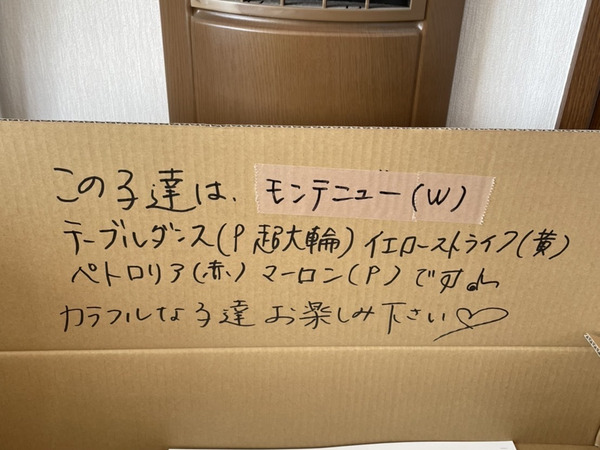 この子達は、モンテニュー(W)
テーブルダンス(P 超大輪) イエローストライプ(黄)
ペトロリア(赤) マーロン(P) です♪
カラフルな子達 お楽しみ下さい♡